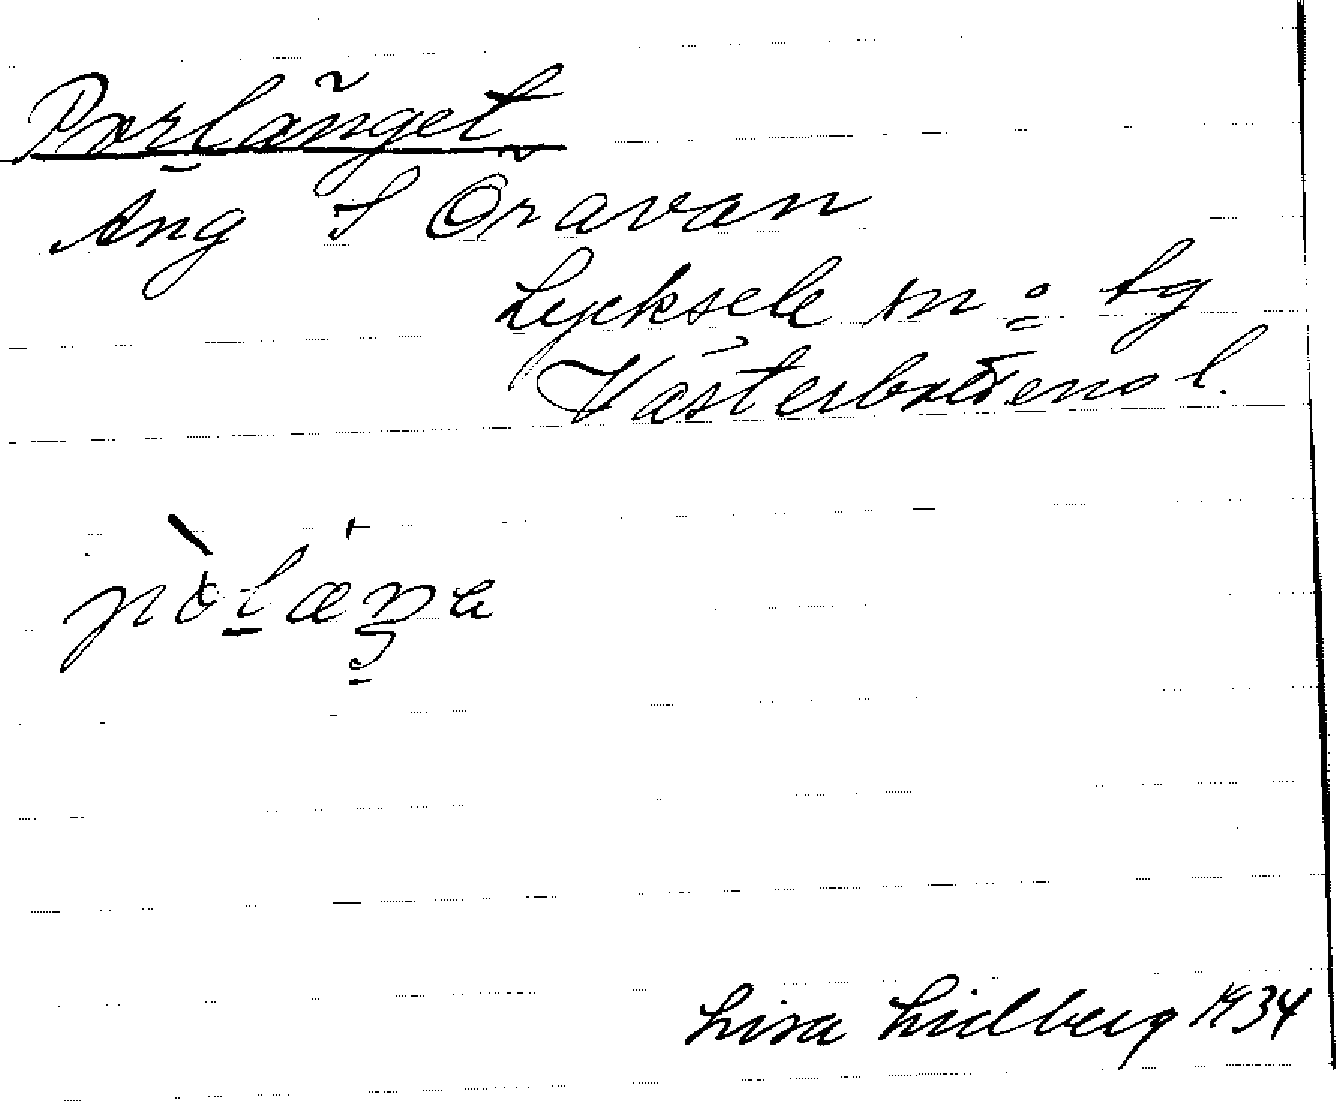 Porlänget
Äng I Öravan
Lycksele sn o tg
Västerbottens l.
Lisa Lidberg 1934